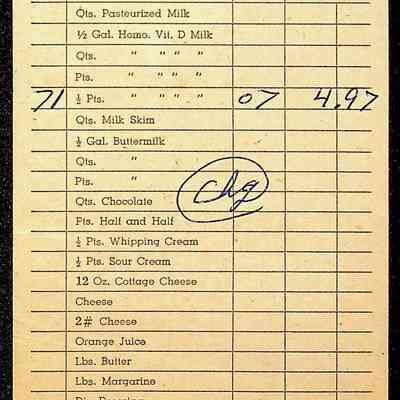 Qts. Pasteurized Milk
½ Gal. Homo. Vit. D Milk
Qts. " " " "
Pts. " " " "
71 ½ Pts. " " " " 07 4.97
Qts. Milk Skim
½ Gal. Buttermilk
Qts. "
Pts. "
chg
Qts. Chocolate
Pts. Half and Half
½ Pts. Whipping Cream
½ Pts. Sour Cream
12 Oz. Cottage Cheese
Cheese
2# Cheese
Orange Juice
Lbs. Butter
Lbs. Margarine